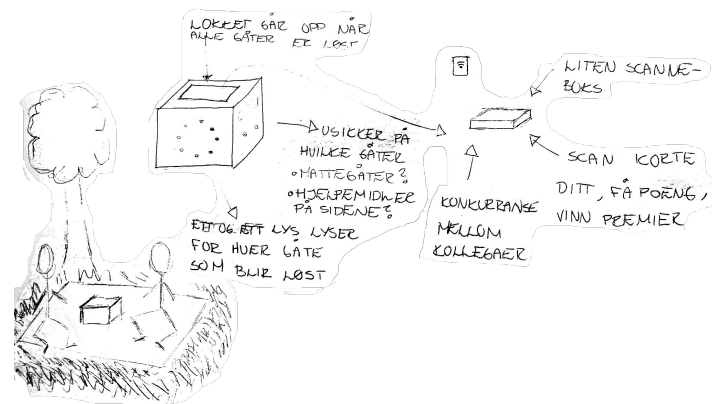 LOKKET GÅR OPP NÅR
ALLE GÅTER ER LØST
USIKKER PÅ
HVILKE GÅTER
• MATTEGÅTER?
• HJELPEMIDLER
PÅ SIDENE?
ETT OG ETT LYS LYSER
FOR HVER GÅTE
SOM BLIR LØST
LITEN SCANNE-
BOKS
SCAN KORTE
DITT, FÅ POENG,
VINN PREMIER
KONKURRANSE
MELLOM
KOLLEGAER